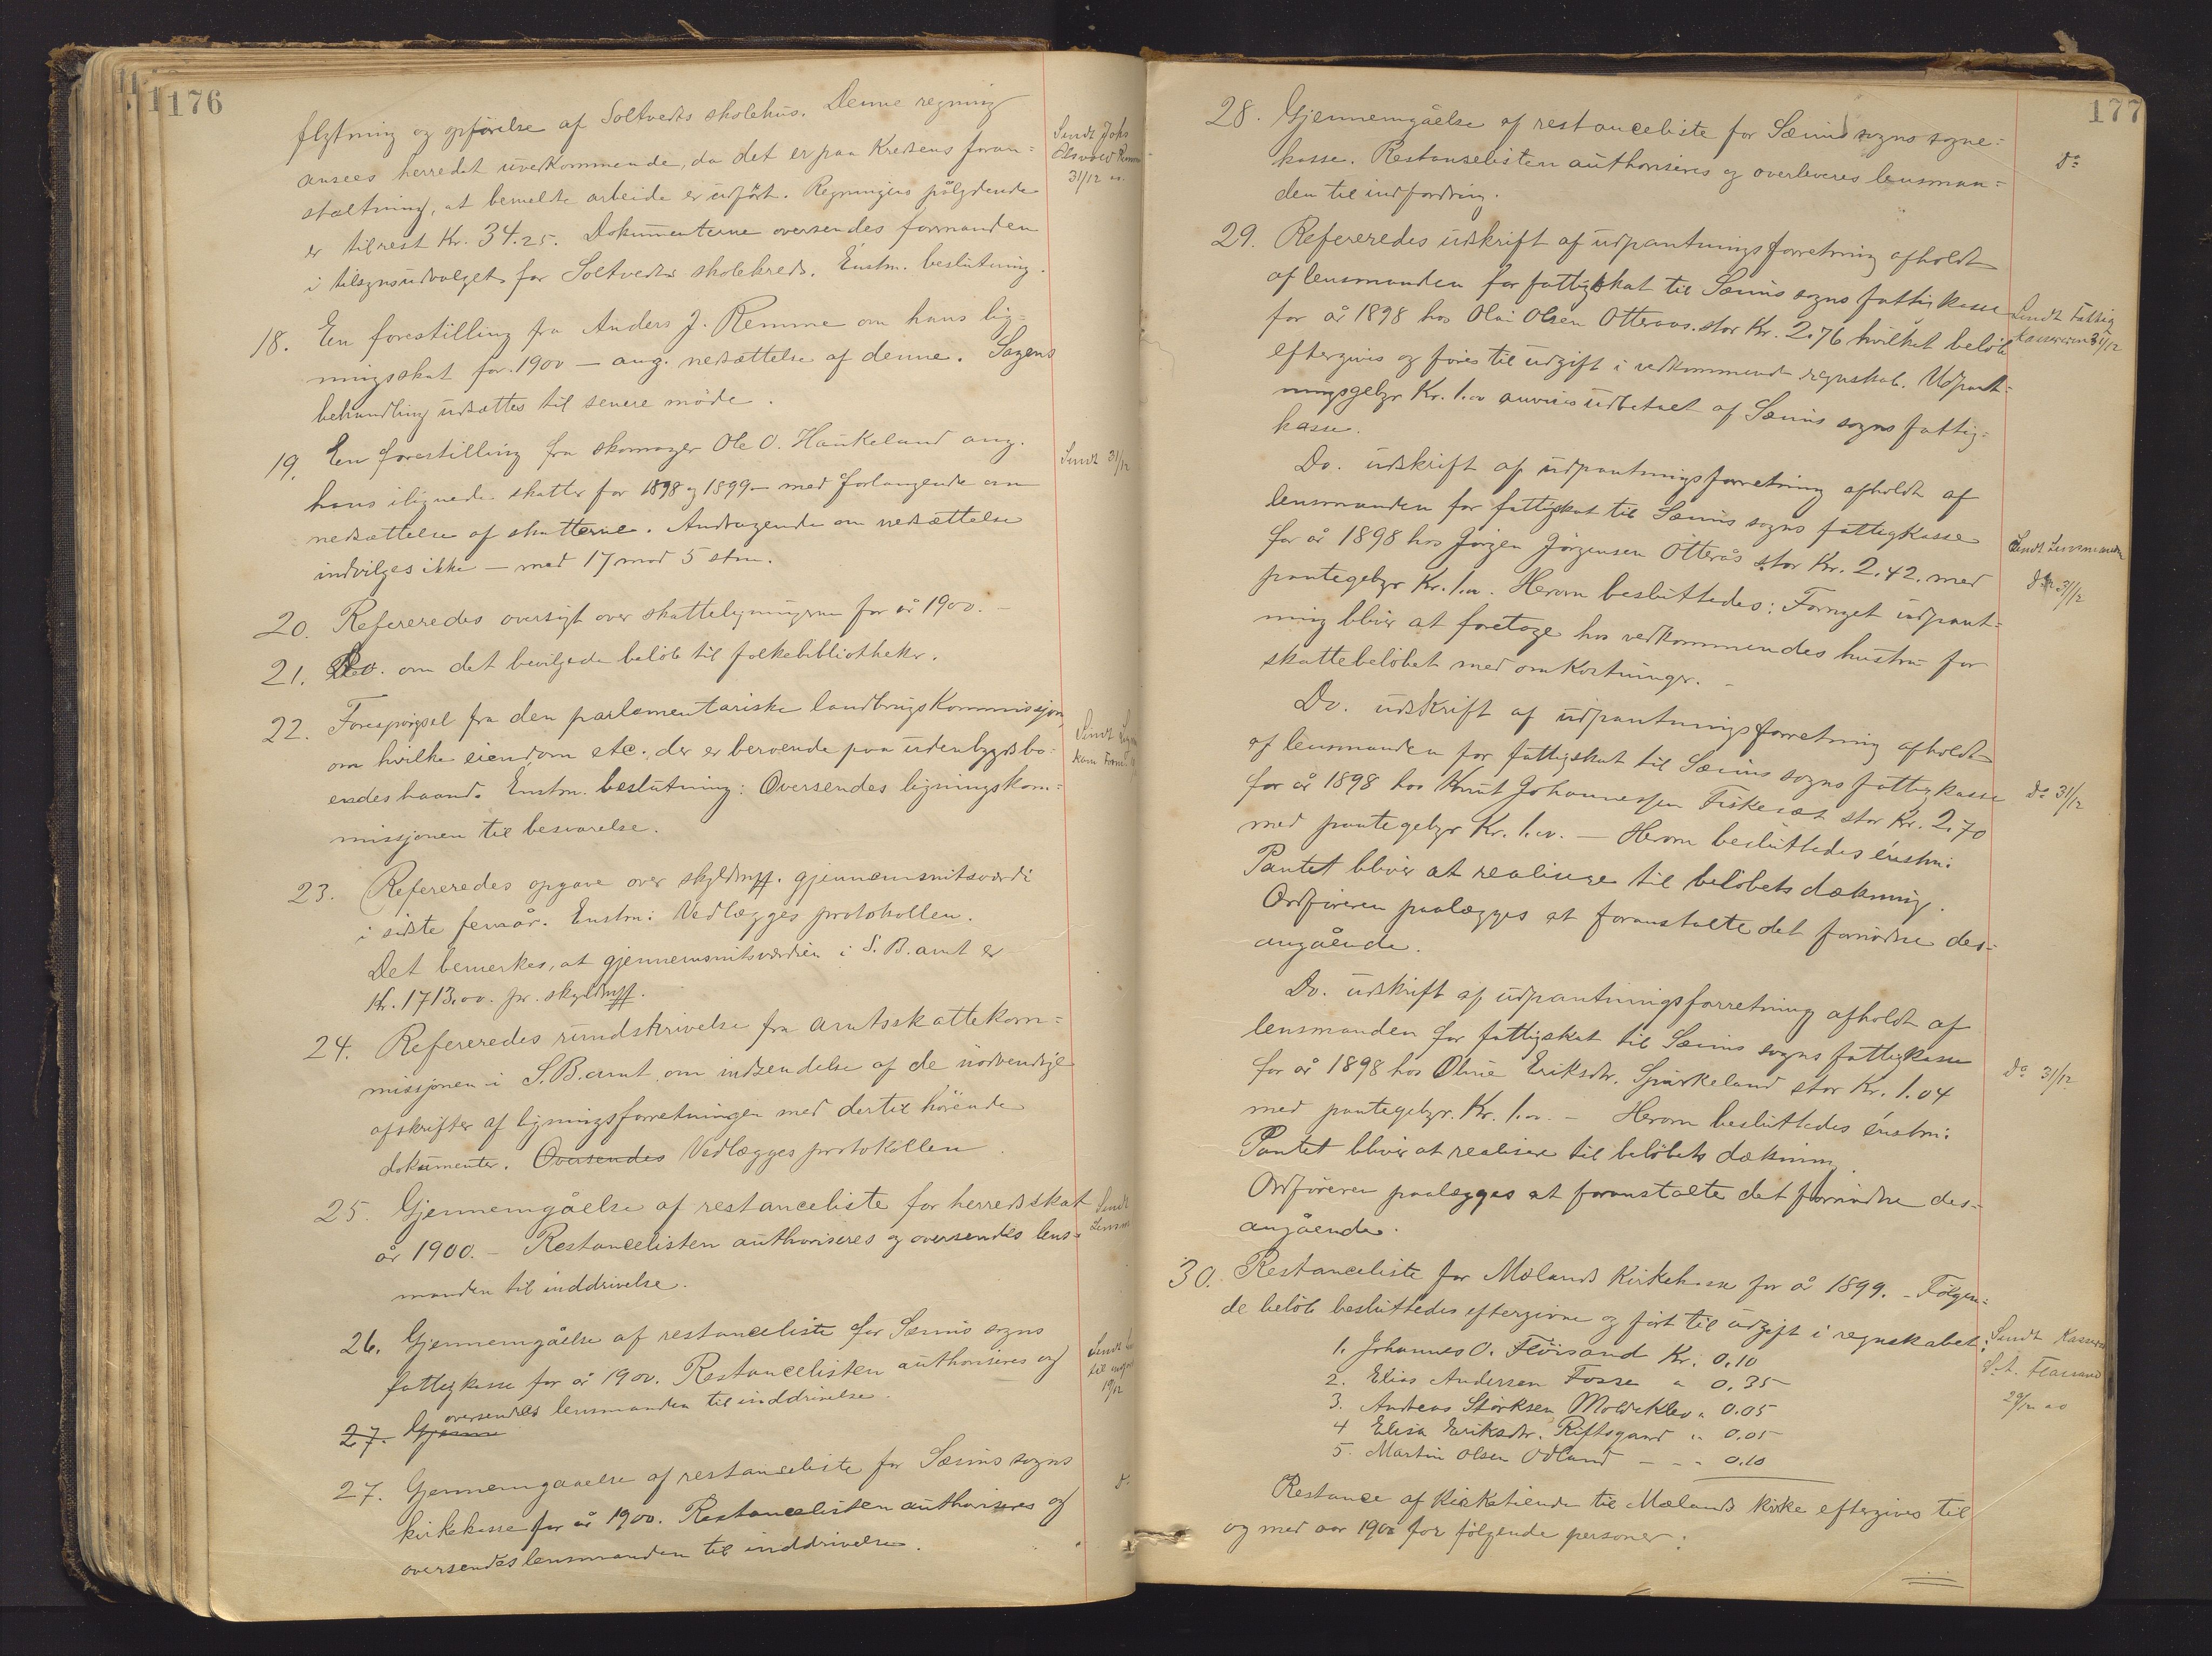 176
flytning og opførelse af Soltvedts skolehus. Denne regning
ansees herredet uvedkommende, da det er paa Kredsens foran=
staltning, at bemeldte arbeide er udført. Regningens pålydende
er tilrest Kr. 34.25. Dokumenterne oversendes formanden
i tilsynsudvalget for Soltvedts skolekreds. Enstm. beslutning.
Sendt Johs
31/12 00.
18. En forestilling fra Anders J. Remme om hans lig-
ningsskat for 1900 – ang. nedsættelse af denne. Sagens
behandling udsættes til senere møde.
19. En forestilling fra skomager Ole O. Haukeland ang.
hans ilignede skatter for 1898 og 1899 – med forlangende om
nedsættelse af skatterne. Andragende om nedsættelse
indvilges ikke – med 17 mod 5 stm.
Sendt 31/12
20. Refereredes oversigt over skatteligningerne for år 1900. –
21. Do. om det bevilgede beløb til folkebibliotheker.
22. Forespørgsel fra den parlamentariske landbrugskommissjon
om hvilke eiendom etc. der er beroende paa udenbygdsbo=
endes haand. Enstm. beslutning: Oversendes ligningskom=
missjonen til besvarelse.
23. Refereredes opgave over skyldmk. gjennemsnitsværdi
i sidste femår. Enstm: Vedlægges protokollen.
Det bemerkes, at gjennemsnitsværdien i S. B. amt er
Kr. 1713.00. pr. skyldmk.
24. Refereredes rundskrivelse fra amtsskattekom=
missjonen i S. B. amt om indsendelse af de nødvendige
afskrifter af ligningsforretningen med dertil hørende
dokumenter. Oversendes Vedlægges protokollen.
25. Gjennemgåelse af restanceliste for herredsskat
år 1900. – Restancelisten authoriseres og oversendes lens=
manden til inddrivelse.
Sendt
Lensm
26. Gjennemgåelse af restanceliste for Sæims sogns
fattigkasse for år 1900. Restancelisten authoriseres og
oversendes lensmanden til inddrivelse.
19/12
27. Gjenne
27. Gjennemgaaelse af restanceliste for Sæims sogns
kirkekasse for år 1900. Restancelisten authoriseres og
oversendes lensmanden til inddrivelse.
do
177
28. Gjennemgåelse af restanceliste for Sæims sogns sogne=
kasse. Restanselisten authoriseres og overleveres lensman=
den til indfordring.
do
29. Refereredes udskrift af udpantningsforretning afholdt
af lensmanden for fattigskat til Sæims sogns fattigkasse
for år 1898 hos Olai Olsen Otteraas. stor Kr. 2.76 hvilket beløb
eftergives og føres til udgift i vedkommende regnskab. Udpant=
ningsgebyr Kr. 1.00 anvises udbetalt af Sæims sogns fattig=
kasse.
Sendt Fattig
kassereren 31/12
Do. udskrift af udpantningsforretning afholdt af
lensmanden for fattigskat til Sæims sogns fattigkasse
for år 1898 hos Jørgen Jørgensen Otterås stor Kr. 2.42. med
pantegebyr Kr. 1.00. Herom besluttedes: Fornyet udpant=
ning bliver at foretage hos vedkommendes hustru for
skattebeløbet med omkostninger. –
Sendt Lensmanden
31/12
Do. udskrift af udpantningsforretning afholdt
af lensmanden for fattigskat til Sæims sogns fattigkasse
for år 1898 hos Knut Johannessen Fiskesæt stor Kr. 2.70
med pantegebyr Kr. 1.00. – Herom besluttedes enstm:
Pantet bliver at realisere til beløbets dækning.
Ordføreren paalægges at foranstalte det fornødne des=
angående.
do 31/12
Do. udskrift af udpantningsforretning afholdt af
lensmanden for fattigskat til Sæims sogns fattigkasse
for år 1898 hos Oline Eriksdtr. Spurkeland stor Kr. 1.04
med pantegebyr. Kr. 1.00. – Herom besluttedes enstm:
Pantet bliver at realisere til beløbets dækning.
Ordføreren paalægges at foranstalte det fornødne des=
angående.
do 31/12
30. Restanceliste for Mælands Kirkekasse for år 1899. – Følgen=
de beløb besluttedes eftergivne og ført til udgift i regnskabet:
1. Johannes O. Fløisand Kr. 0.10
2. Elias Andersen Fosse " 0.35
3. Andreas Størksen Moldeklev " 0.05
4 Elisa Eriksdtr. Riftsgaard " 0.05
5. Martin Olsen Odland – – " 0.10
Sendt Kasserer
29/12 00
Restance af Kirketiende til Mælands kirke eftergives til
og med aar 1900 for følgende personer: